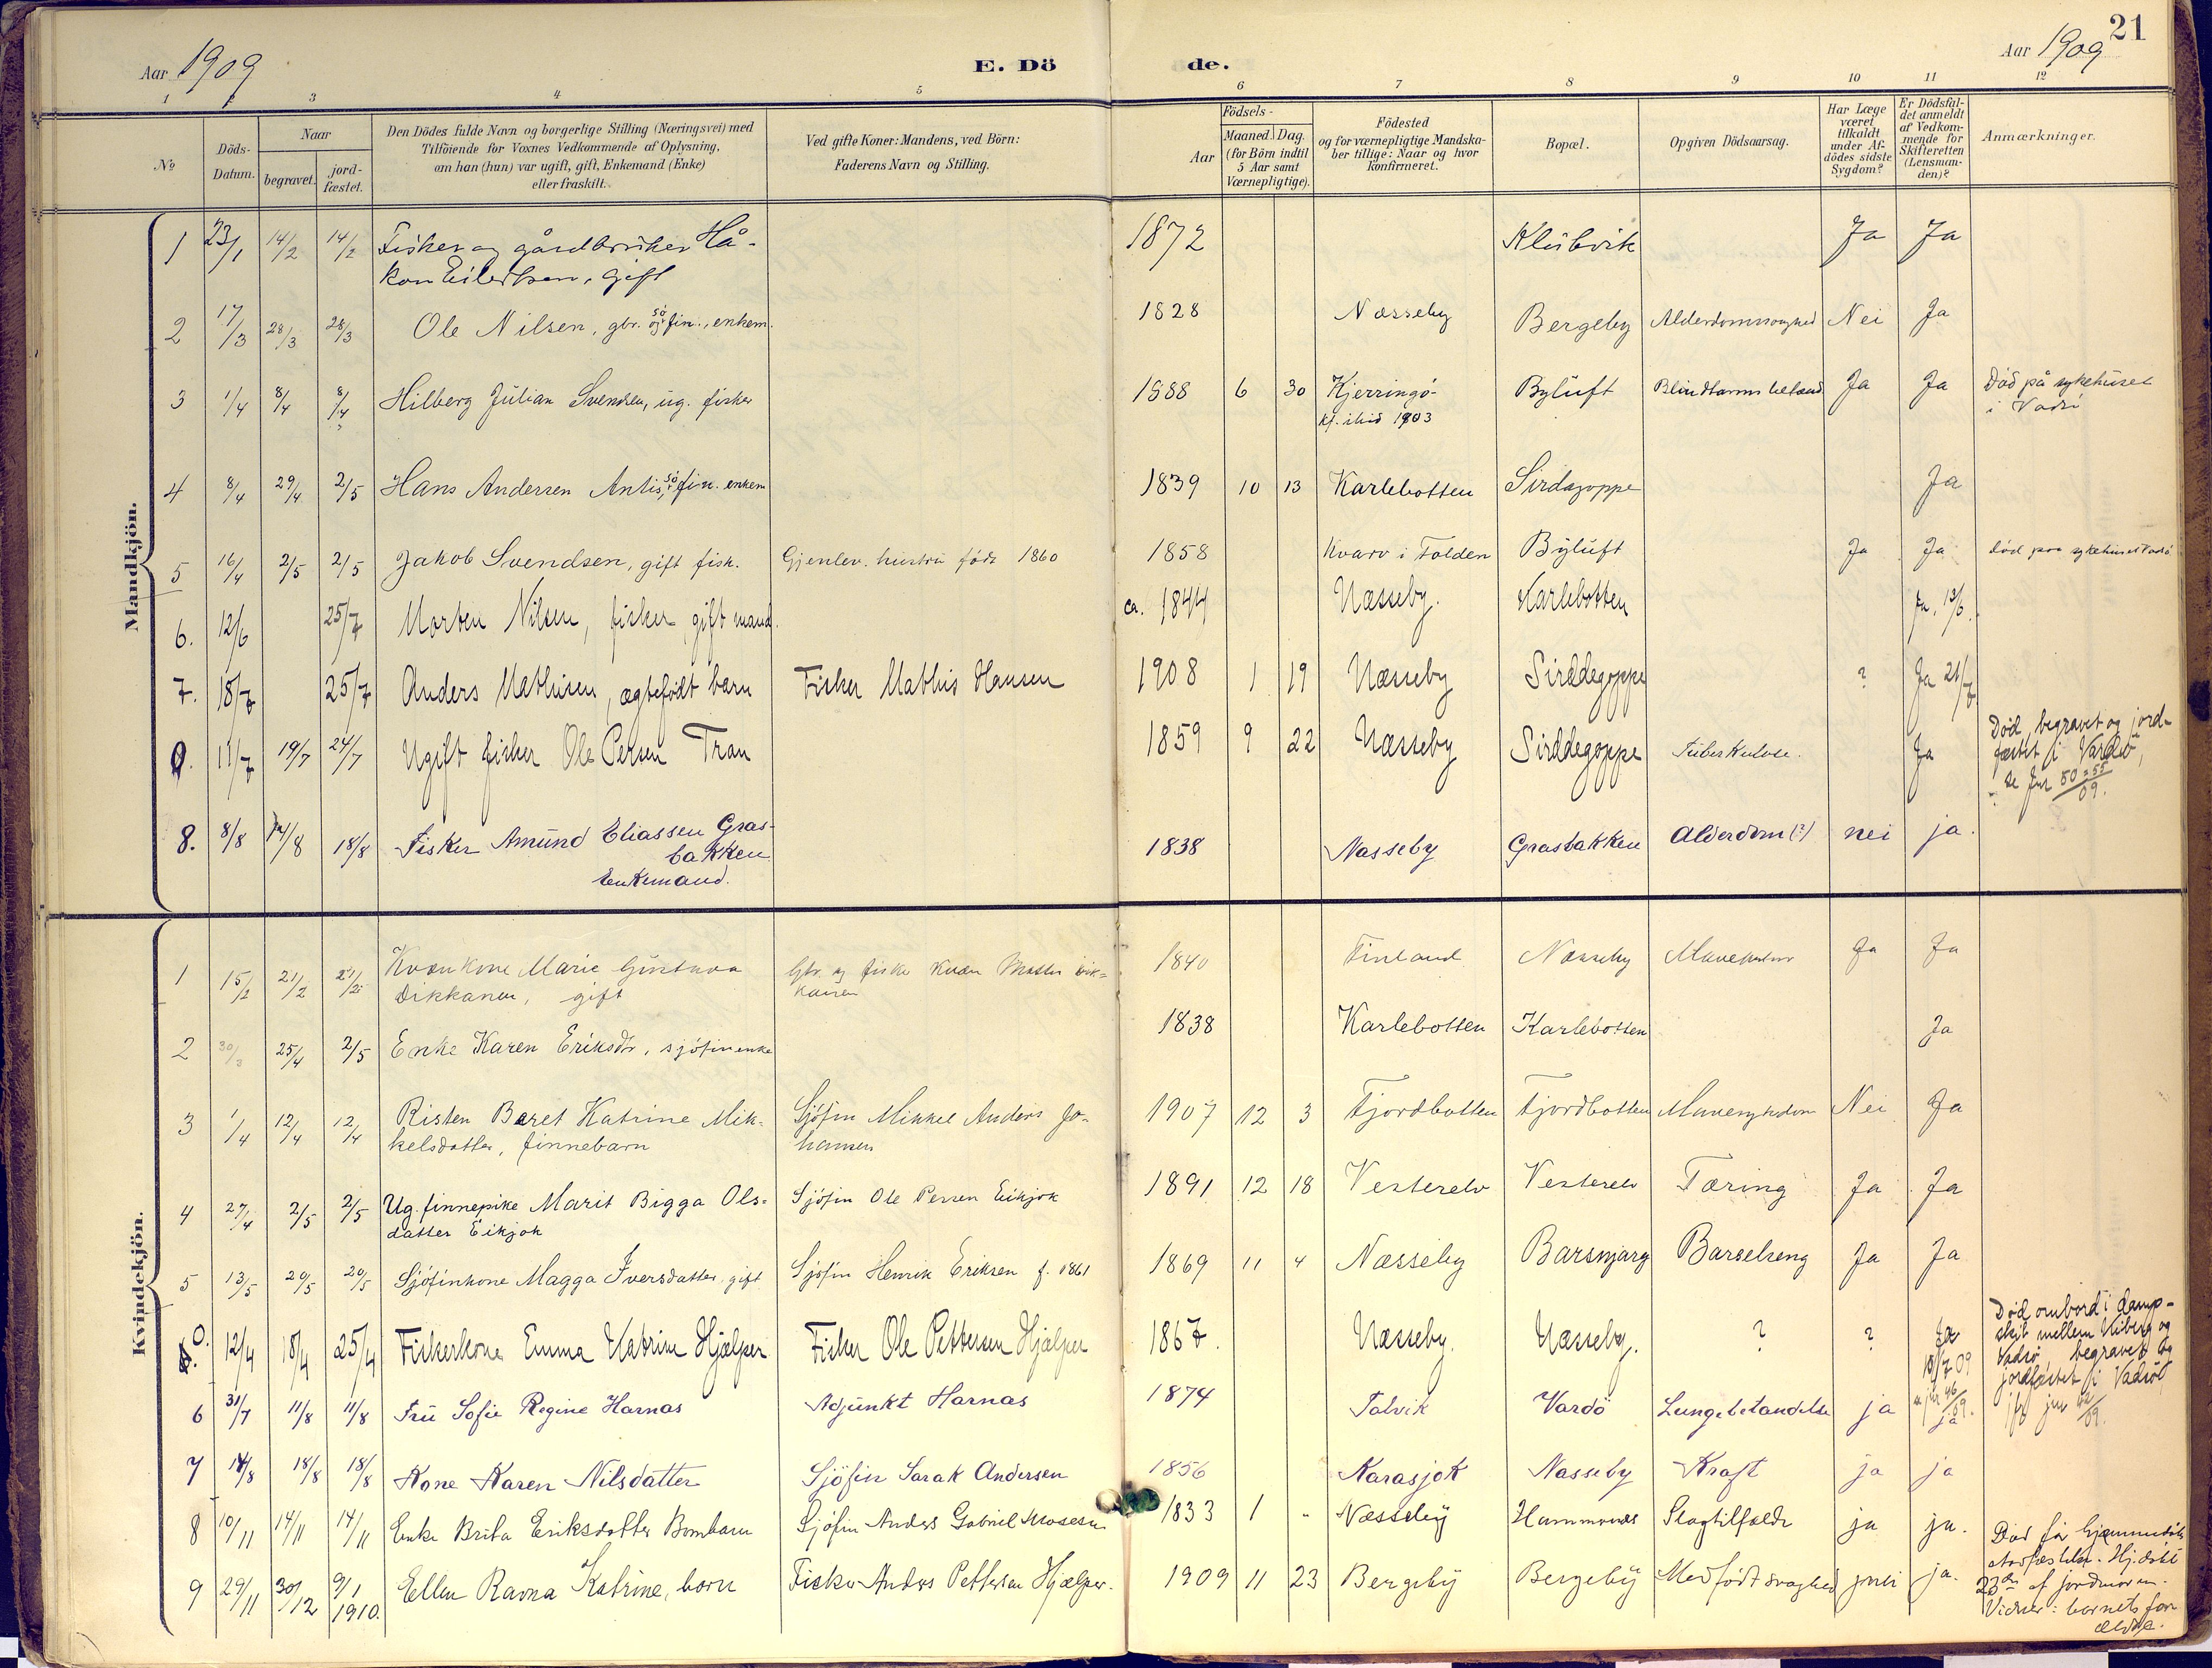 21
Aar 1909
E. Dö
de.
Aar 1909
1 2 3 4 5 6 7 8 9 10 11 12
No
Döds-
Datum.
Naar
begravet.
jord-
fæstet.
Den Dödes fulde Navn og borgerlige Stilling (Næringsvei) med
Tilföiende for Voxnes Vedkommende af Oplysning,
om han (hun) var ugift, gift, Enkemand (Enke)
eller fraskilt.
Ved gifte Koner: Mandens, ved Börn:
Faderens Navn og Stilling.
Födsels-
Aar
Maaned. Dag.
(for Börn indtil
5 Aar samt
Værnepligtige).
Födested
og for værnepligtige Mandska-
ber tillige: Naar og hvor
konfirmeret.
Bopæl.
Opgiven Dödsaarsag.
Har Læge
været
tilkaldt
under Af-
dödes sidste
Sygdom?
Er Dödsfal-
det anmeldt
af Vedkom-
mende for
Skifteretten
(Lensman-
den)?
Anmærkninger.
Mandkjön.
1 23/1 14/2 14/2 Fisker og gårdbruker Hå- 1872 Klubvik Ja Ja
kon Eilertsen, gift
2 17/3 28/3 28/3 Ole Nilsen, gbr. og søfin., enkem. 1828 Næsseby Bergeby Alderdomssvaghed Nei Ja
3 1/4 8/4 8/4 Hilberg Julian Svendsen, ug. fisker 1888 6 30 Kjerringö- Byluft Blindtarmsbetænd Ja Ja Död på sykehuset
kf. ibid 1903 i Vadsö
4 8/4 29/4 2/5 Hans Andersen Antis, søfin. enkem 1839 10 13 Karlebotten Sirdagoppe Ja
5 16/4 2/5 2/5 Jakob Svendsen, gift fisk. Gjenlev. hustru födt 1860 1858 Kvarv i Folden Byluft Ja Ja död paa sykehuset Vadsö
6. 12/6 25/7 Morten Nilsen, fisker, gift mand. ca. 1844 Næsseby. Karlebotten Ja, 13/6.
7. 18/7 25/7 Anders Mathisen, ægtefødt barn Fisker Mathis Hansen 1908 1 19 Næsseby Sirddegoppe ? Ja 21/7
0. 11/7 19/7 24/7 Ugift fisker Ole Persen Tran 1859 9 22 Næsseby Sirddegoppe Tuberkulose. Ja Død, begravet og jord-
fæstet i Vardø,
se Jnr 50=55/09.
8. 8/8 14/8 18/8 Fisker Amund Eliassen Gras- 1838 Nasseby Grasbakken Alderdom (?) nei ja.
bakken
Enkemand.
Kvindekjön.
1 15/2 21/2 21/2 Kvænkone Marie Gustava Gbr. og fisker kvæn 1840 Finland Næsseby Ja Ja
Dikkanen, gift
2 30/3 25/4 2/5 Enke Karen Eriksdr, sjöfinenke 1838 Karlebotten Karlebotten Ja
3 1/4 12/4 12/4 Risten Beret Katrine Mik- Sjöfin Mikkel Anders Jo- 1907 12 3 Fjordbotten Fjordbotten Mavesygdom Nei Ja
kelsdatter, finnebarn hansen
4 27/4 2/5 2/5 Ug. finnepike Marit Bigga Ols- Sjöfin Ole Persen Eikjok 1891 12 18 Vesterelv Vesterelv Tæring Ja Ja
datter Eikjok
5 13/5 20/5 20/5 Sjöfinkone Magga Iversdatter, gift Sjöfin Henrik Eriksen f. 1861 1869 11 4 Næsseby Barsnjarg Barselseng Ja Ja
0. 12/4 18/4 25/4 Fiskerkone Emma Katrine Hjælper Fisker Ole Pettersen Hjælper 1867. Næsseby. Næsseby. ? ? Ja Død ombord i damp-
skib mellem Kiberg og
Vadsø, begravet og
jordfæstet i Vadsø,
6 31/7 11/8 11/8 Fru Sofie Regine Harnas Adjunkt Harnas 1874 Talvik Vardö Lungebetandelse ja ja
7 14/8 18/8 18/8 Kone Karen Nilsdatter Sjöfin Sarak Andersen 1856 Karasjok Nasseby Kræft ja ja
8 10/11 14/11 14/11 Enke Brita Eriksdatter Bomban Sjöfin Anders Gabriel Mosesen 1833 1 - Næsseby Hammernes Slagtilfælde ja ja.
9 29/11 30/12 9/1 1910. Ellen Ravna Katrine, barn Fisker Anders Pettersen Hjælper. 1909 11 23 Bergeby Bergeby Medfödt svaghed nei ja. Död før hjemmedåbs
stadfæstelse. Hj. döbt
23de af jordmoren.
Vidner: barnets for-
ældre.